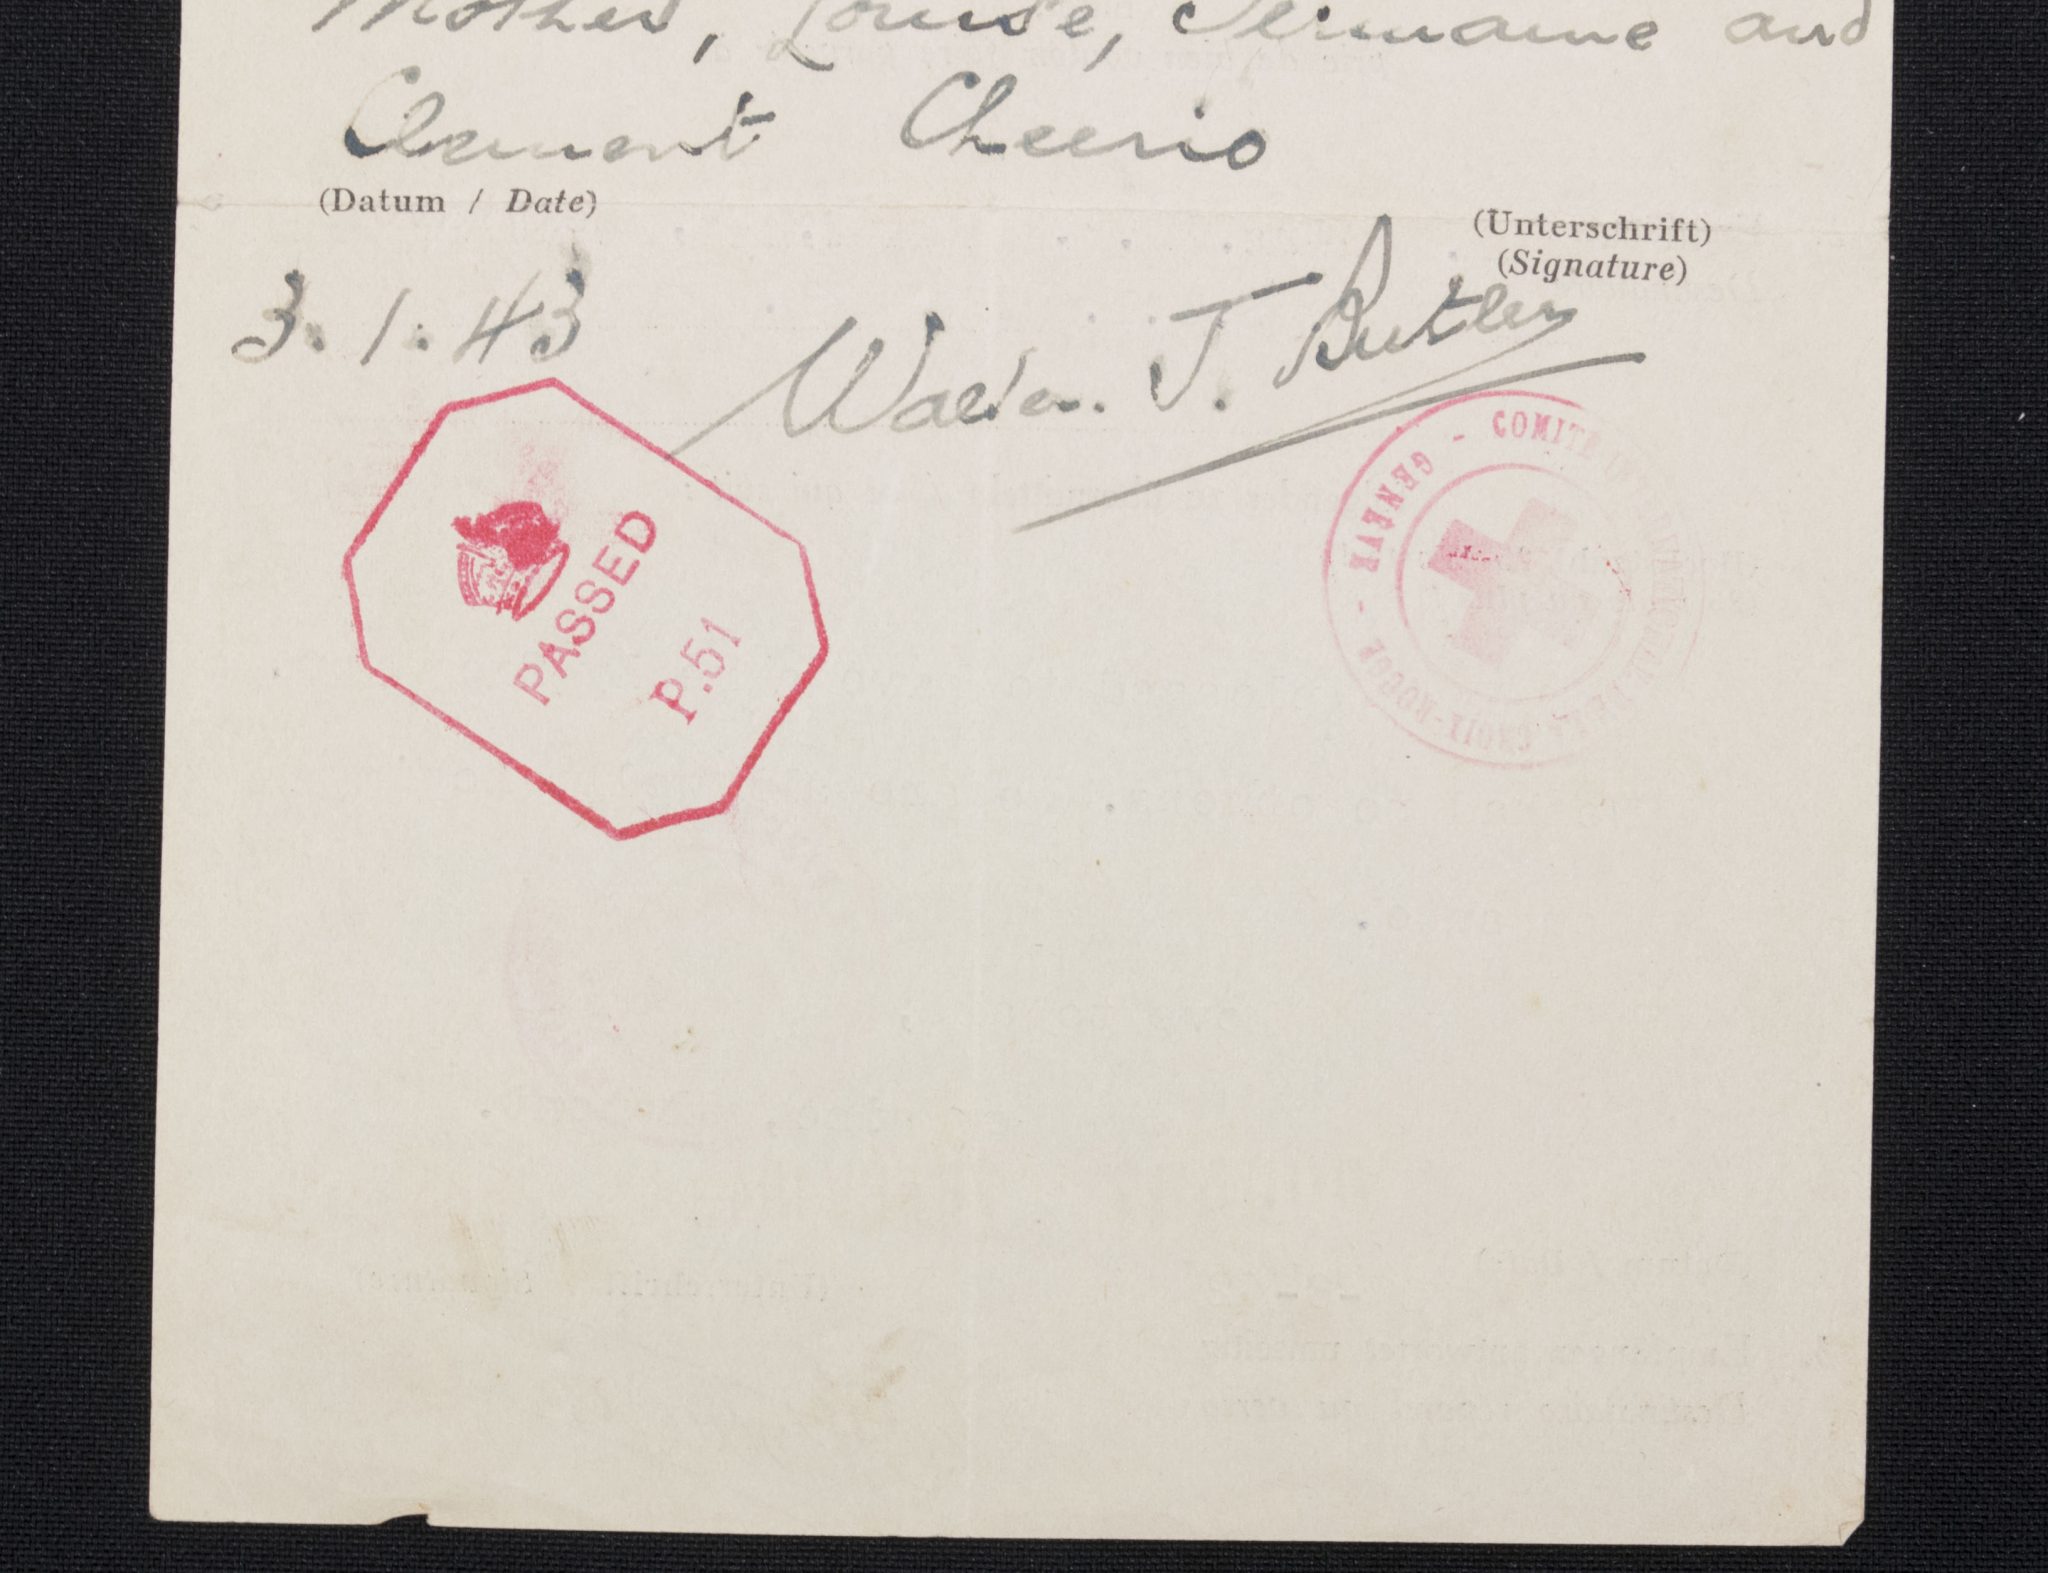 Mother, Louise, Germaine and
Clement Cheerio
(Datum / Date)
(Unterschrift)
(Signature)
3.1.43
Walter. J. Butler
PASSED
P.51
COMITÉ INTERNATIONAL DE LA CROIX-ROUGE - GENEVE -